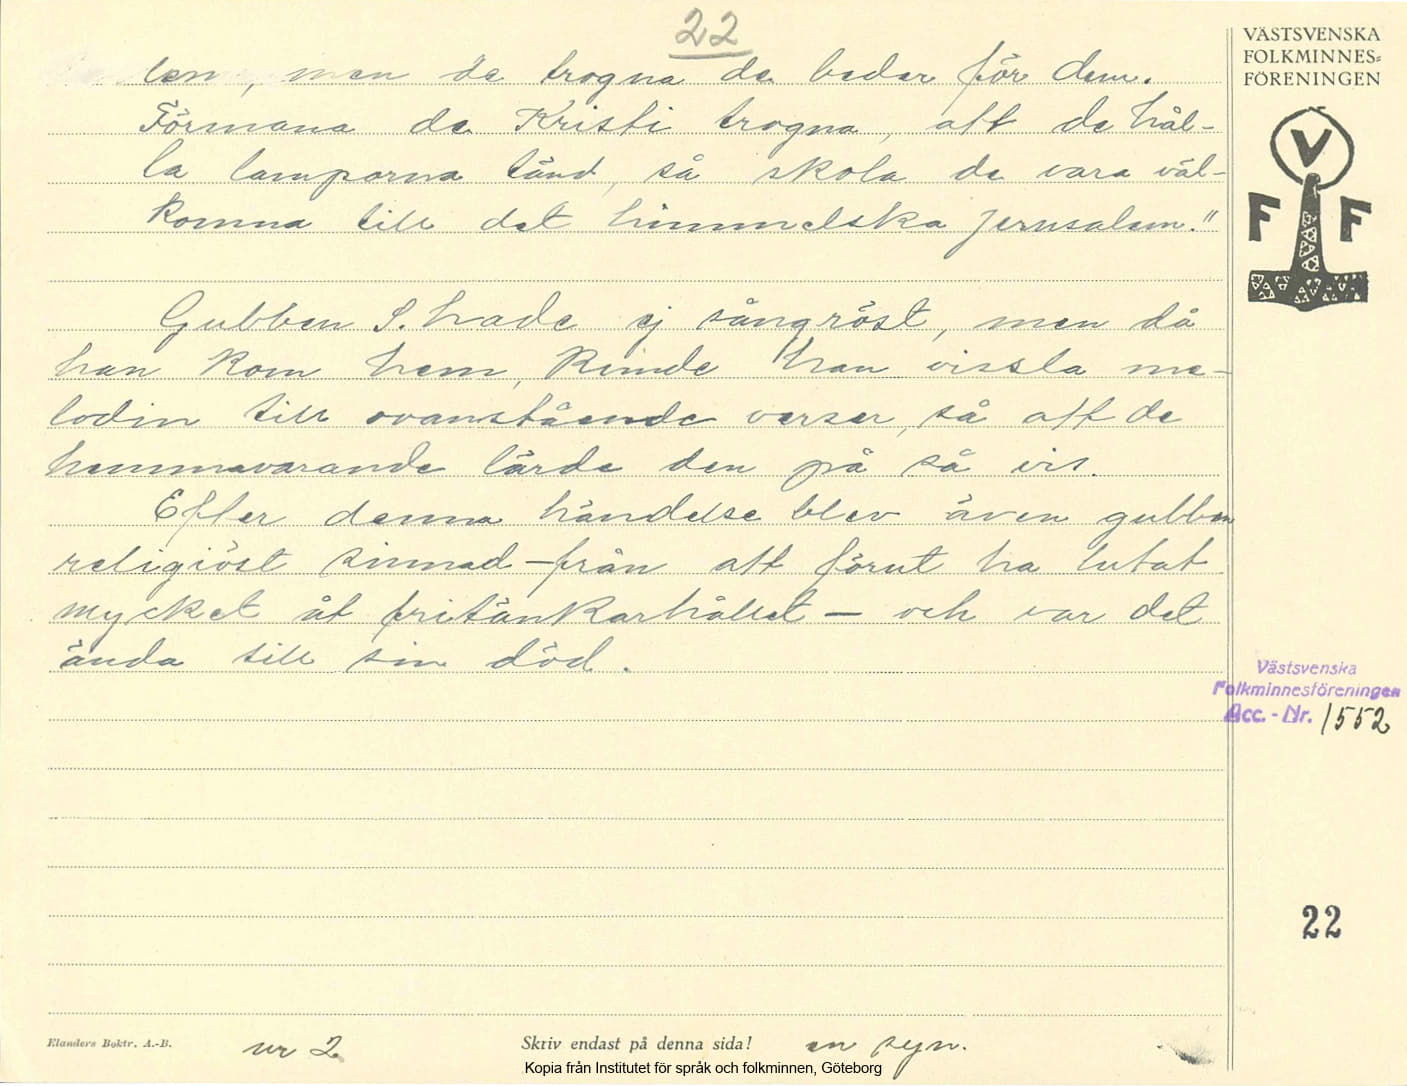 22
VÄSTSVENSKA
FOLKMINNES-
FÖRENINGEN
len, men de trogna de beder för dem.
Förmana de Kristi trogna, att de hål-
la lamporna tänd, så skola de vara väl-
komna till det himmelska Jerusalem."
V
F F
Gubben S. hade ej sångröst, men då
han kom hem, kunde han vissla me-
lodin till ovanstående verser, så att de
hemmavarande lärde den på så vis.
Efter denna händelse blev även gubben
religiöst sinnad - från att förut ha lutat
mycket åt fritänkarhållet - och var det
ända till sin död.
Västsvenska
Folkminnesföreningen
Acc.-Nr. 1552
22
Elanders Boktr. A.-B.
nr 2
Skriv endast på denna sida!
en syn.
Kopia från Institutet för språk och folkminnen, Göteborg